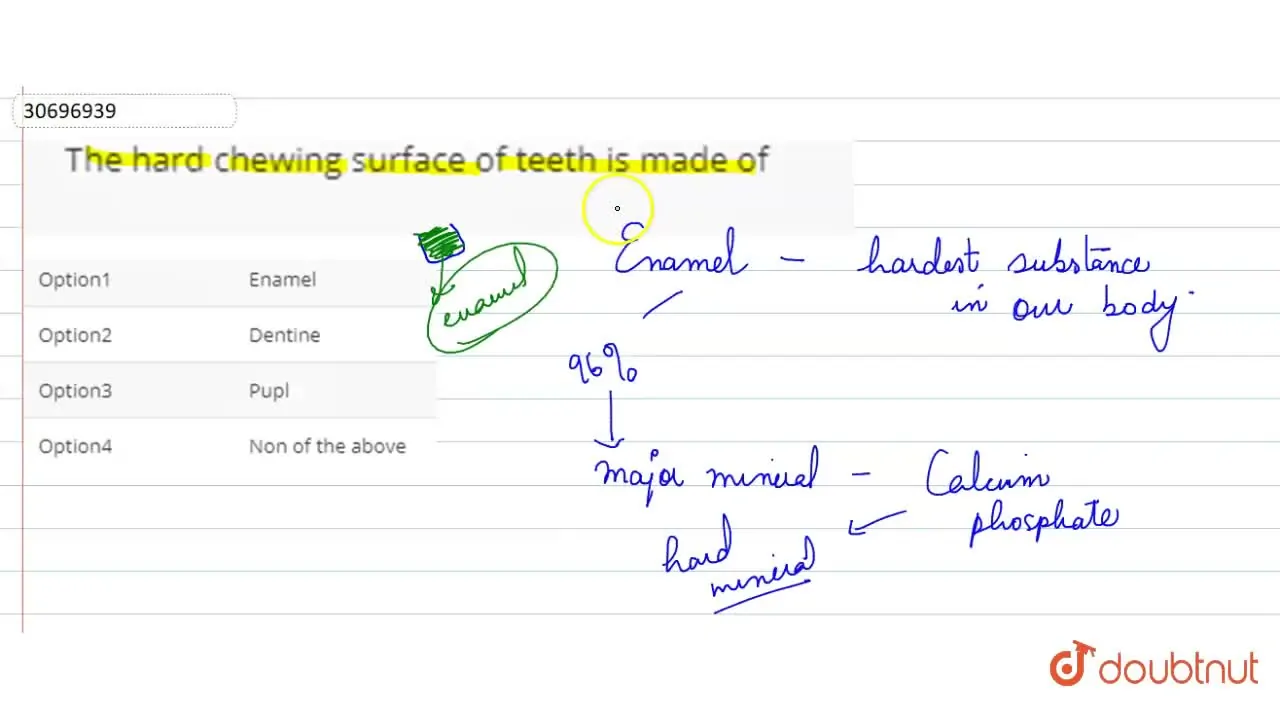 30696939
The hard chewing surface of teeth is made of
Option1 Enamel
Option2 Dentine
Option3 Pupl
Option4 Non of the above
enamel
Enamel - hardest substance
in our body.
96%
major mineral - Calcium
phosphate
hard
mineral
doubtnut